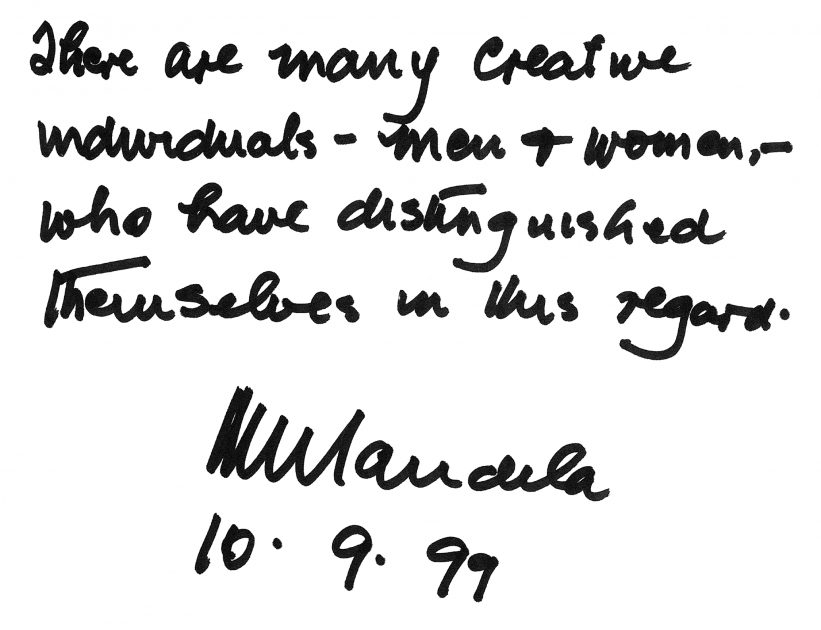 There are many creative
individuals - men + women,-
who have distinguished
themselves in this regard.
NMandela
10. 9. 99